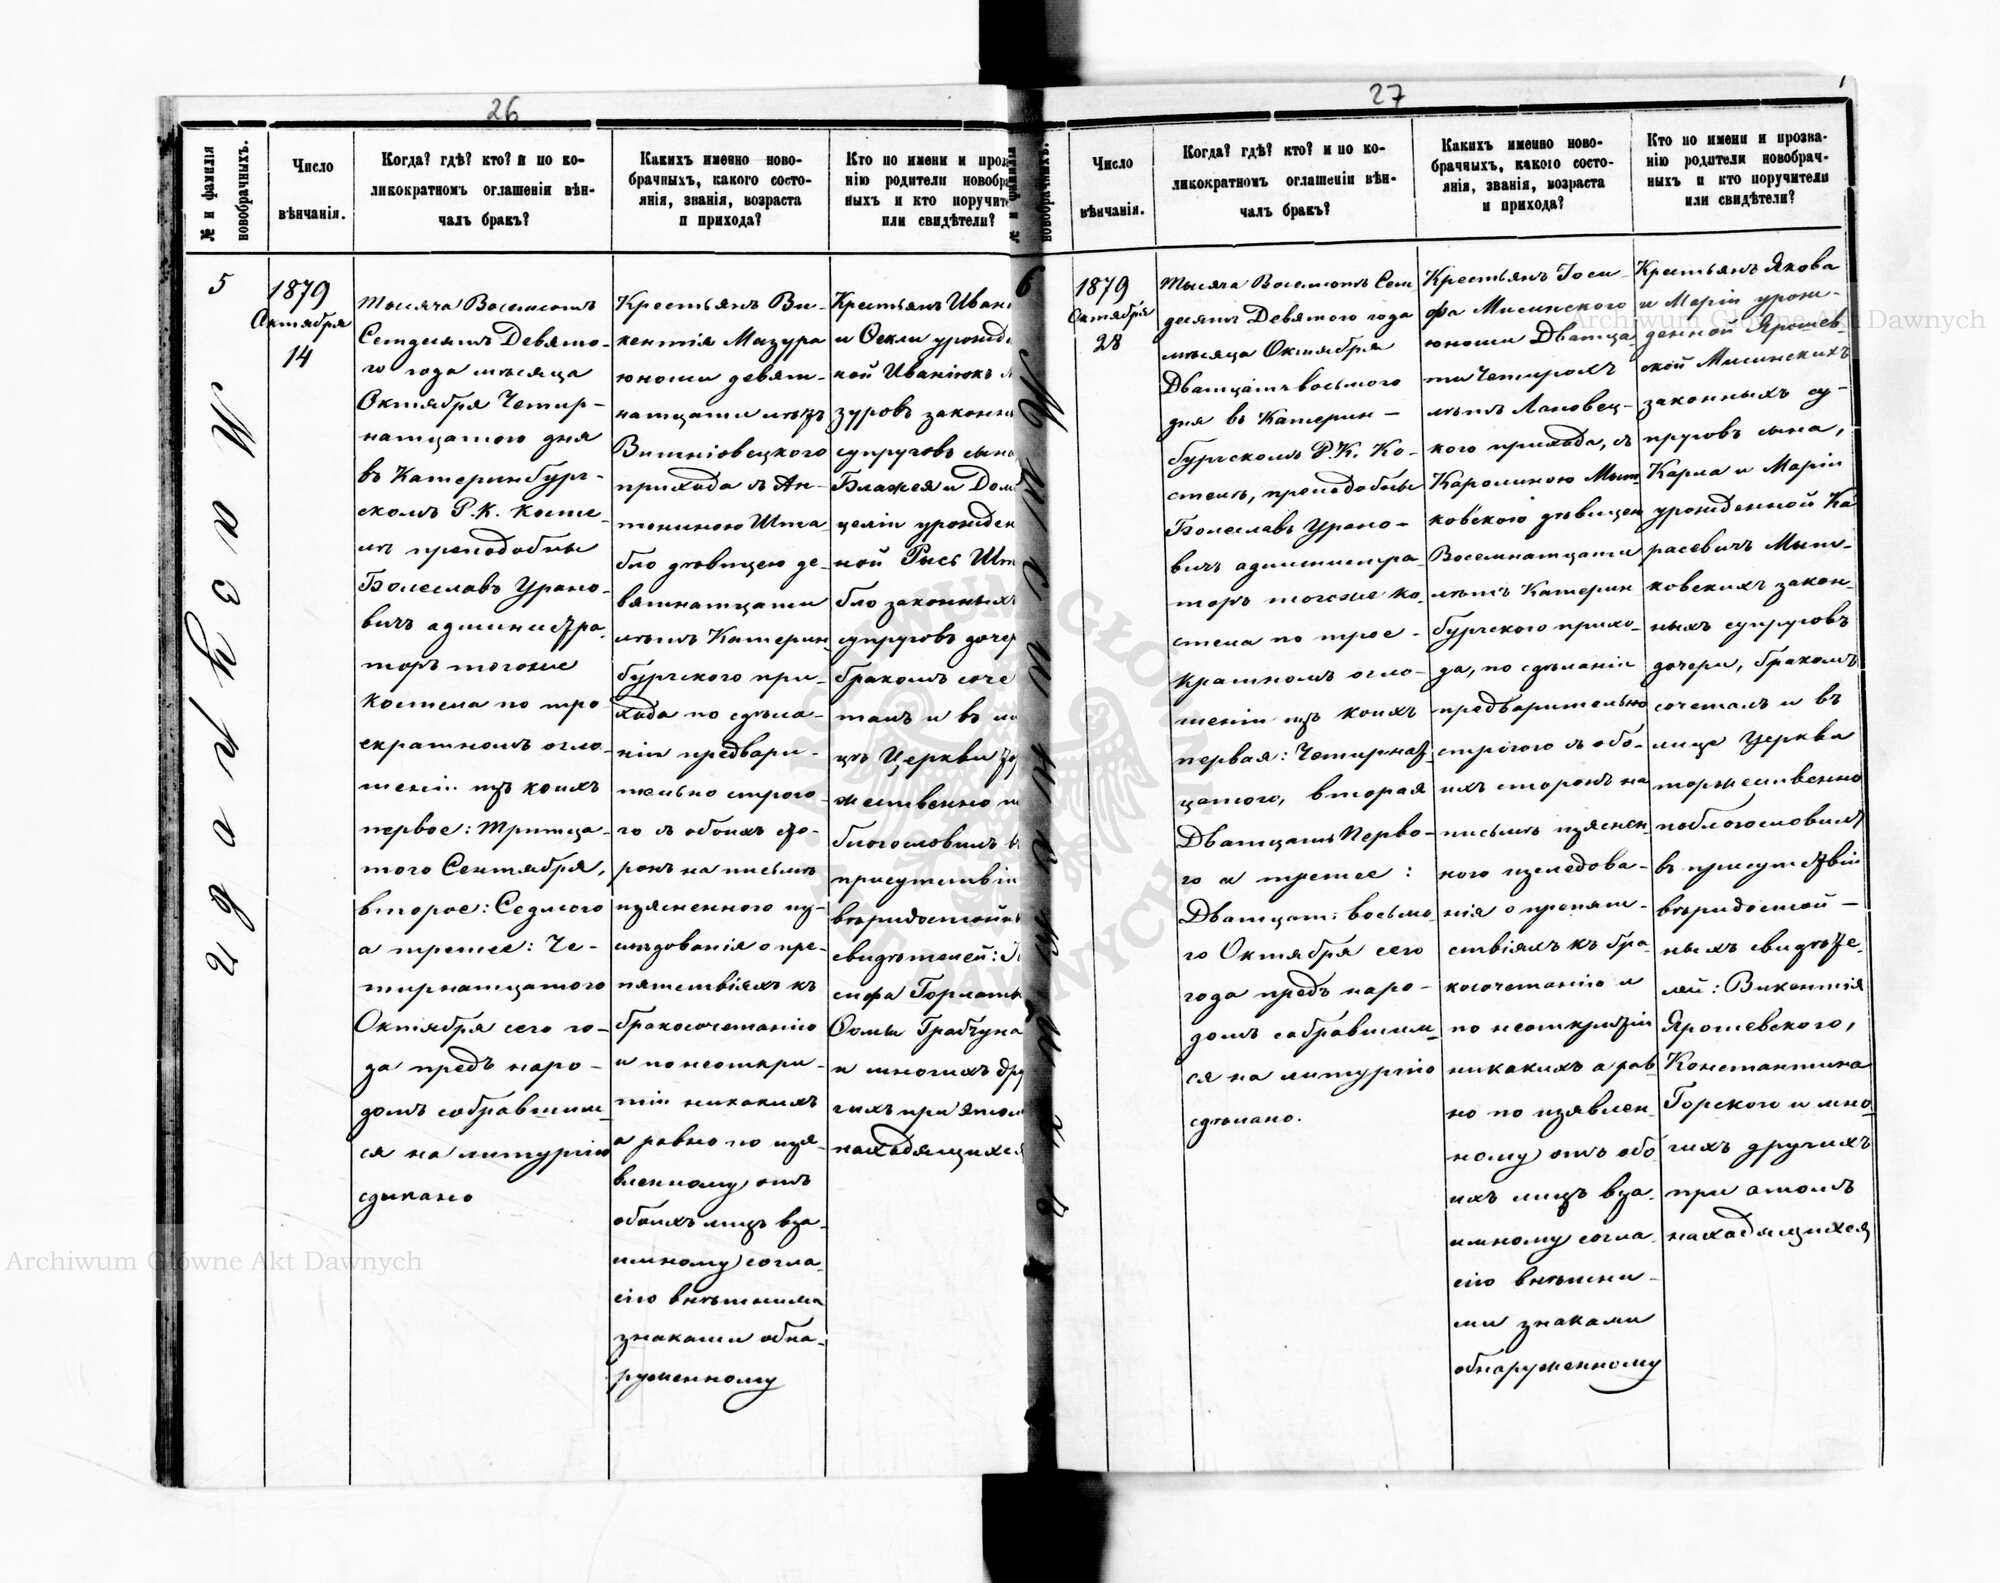 26
№ и фамилія новобрачныхъ.
Число
вѣнчанія.
Когда? гдѣ? кто? и по ко-
ликократномъ оглашеніи вѣн-
чалъ бракъ?
Какихъ именно ново-
брачныхъ, какого состо-
янія, званія, возраста
и прихода?
Кто по имени и проз
нію родители новобра
ныхъ и кто поручит
или свидѣтели?
5
1879
Октября
14
Тысяча Восемсотъ
Семдесятъ Девято-
го года мѣсяца
Октября Четир-
натцатого дня
въ Катеринбург-
скомъ Р.К. Косте-
лѣ преподобны
Болеславъ Урано-
вичъ администра-
торъ тогоже
костела по тро
екратномъ огло-
шеніи изъ коихъ
первое: Тритца-
того Сентября,
второе: Седмого
а третее: Че-
тирнатцатого
Октября сего го-
да предъ наро-
домъ собравшим-
ся на литургію
сдѣлано
Крестьянъ Ви-
кентія Мазура
юноши девят-
натцати лѣтъ
Вишніовецкого
прихода съ Ан-
тониною Шта-
бло дѣвицею де-
вятнатцати
лѣтъ Катерин
бургского при-
хода по сдѣла-
ніи предвари-
тельно строго-
го съ обоихъ сто-
ронъ на письмѣ
изясненного из-
слѣдованія о пре-
пятствіяхъ къ
бракосочетанію
и по неоткри-
тіи никакихъ
а равно по изя-
вленному отъ
обоихъ лицъ вза-
имному согла-
сію внѣшними
знаками обна-
руженному
Крестьянъ Иван
и Фекли урожд
ной Иваніюкъ М
зуровъ законн
супруговъ сына
Блажея и Дом
целіи урожден
ной Рысь Шт
бло законныхъ
супруговъ дочер
бракомъ соче
талъ и въ ли
цѣ Церкви тор
жественно п
благословилъ в
присутствіи
вѣридостойны
свидѣтелей: І
сифа Горлаты
Фомы Грабчука
и многихъ дру
гихъ при этом
находящихся
Мазуръ
27
№ и фамилія новобрачныхъ.
Число
вѣнчанія.
Когда? гдѣ? кто? и по ко-
ликократномъ оглашеніи вѣн-
чалъ бракъ?
Какихъ именно ново-
брачныхъ, какого состо-
янія, званія, возраста
и прихода?
Кто по имени и прозва-
нію родители новобрач-
ныхъ и кто поручители
или свидѣтели?
6
1879
Октября
28
Тысяча Восемсотъ Сем
десятъ Девятого года
мѣсяца Октября
Дватцатьвосьмого
дня въ Катерин-
бургскомъ Р.К. Ко-
стелѣ, преподобны
Болеславъ Урано-
вичъ администра-
торъ тогоже ко-
стела по трое-
кратномъ огло-
шеніи изъ коихъ
первая: Четирнат
цатого, вторая
Дватцать Перво-
го и третее:
Дватцат: восьмо-
го Октября сего
года предъ наро-
домъ собравшим-
ся на литургію
сдѣлано.
Крестьянъ Іоси-
фа Мисинского
юноши Дватца-
ти Четирохъ
лѣтъ Лановец-
кого прихода, съ
Каролиною Мыт
ковского дѣвицею
Восемнатцати
лѣтъ Катерин
бургского прихо-
да, по сдѣланіи
предварительно
строгого съ обо-
ихъ сторонъ на
письмѣ изяснен
ного изслѣдова-
нія о препят-
ствіяхъ къ бра-
косочетанію и
по неоткритіи
никакихъ а рав
но по изявлен
ному отъ обо
ихъ лицъ вза-
имному согла-
сію внѣшни-
ми знаками
обнаруженному
Крестьянъ Якова
и Маріи урож-
денной Ярошев-
ской Мисинскихъ
законныхъ су-
пруговъ сына,
Карла и Маріи
урожденной Ка
расевичъ Мыт-
ковскихъ закон-
ныхъ супруговъ
дочери, бракомъ
сочеталъ и въ
лице Церкви
торжественно
поблогословилъ
въ присутствіи
вѣридостой-
ныхъ свидѣте-
лей: Викентія
Ярошевского,
Константина
Горского и мно
гихъ другихъ
при атомъ
находящихся
Archiwum Główne Akt Dawnych
Archiwum Główne Akt Dawnych